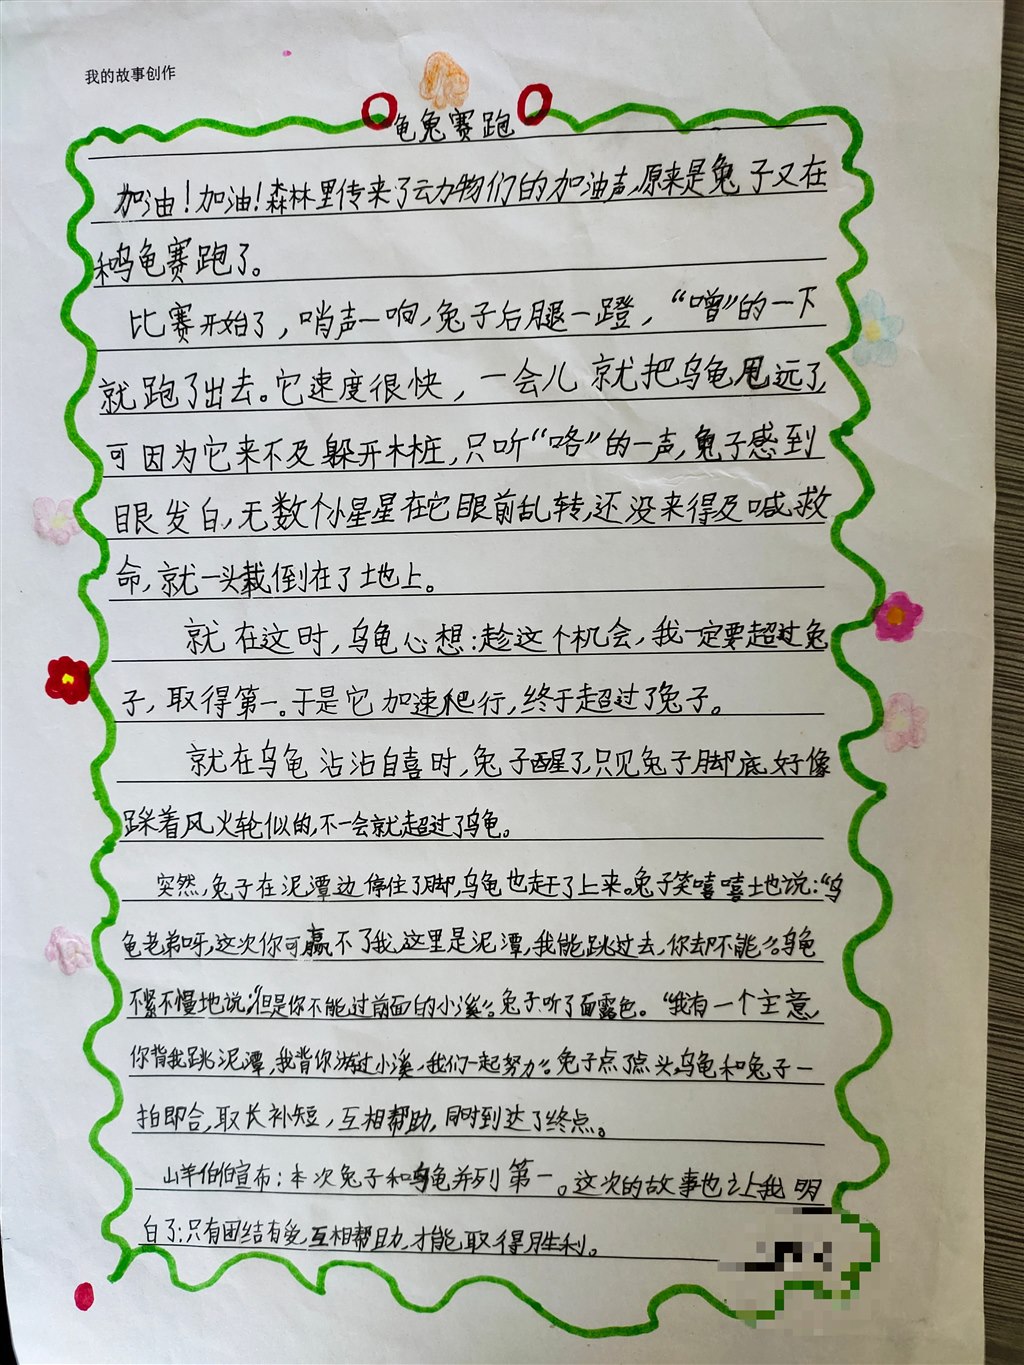 我的故事创作
龟兔赛跑
加油！加油！森林里传来了动物们的加油声,原来是兔子又在
和乌龟赛跑了。
比赛开始了，哨声一响,兔子后腿一蹬，“噌”的一下
就跑了出去。它速度很快，一会儿就把乌龟甩远了,
可因为它来不及躲开木桩,只听“咯”的一声,兔子感到
眼发白,无数个小星星在它眼前乱转,还没来得及喊救
命,就一头栽倒在了土地上。
就在这时,乌龟心想:趁这个机会,我一定要超过兔
子,取得第一。于是它加速爬行,终于超过了兔子。
就在乌龟沾沾自喜时,兔子醒了,只见兔子脚底好像
踩着风火轮似的,不一会就超过了乌龟。
突然,兔子在泥潭边停住了脚,乌龟也赶了上来。兔子笑嘻嘻地说:“乌
龟老弟呀,这次你可赢不了我,这里是泥潭,我能跳过去,你却不能。”乌龟
不紧不慢地说:“但是你不能过前面的小溪”。兔子听了面露色。“我有一个主意,
你背我跳泥潭,我背你游过小溪,我们一起努力”。兔子点了点头,乌龟和兔子一
拍即合,取长补短,互相帮助,同时到达了终点。
山羊伯伯宣布:本次兔子和乌龟并列第一。这次的故事也让我明
白了:只有团结有爱,互相帮助,才能取得胜利。